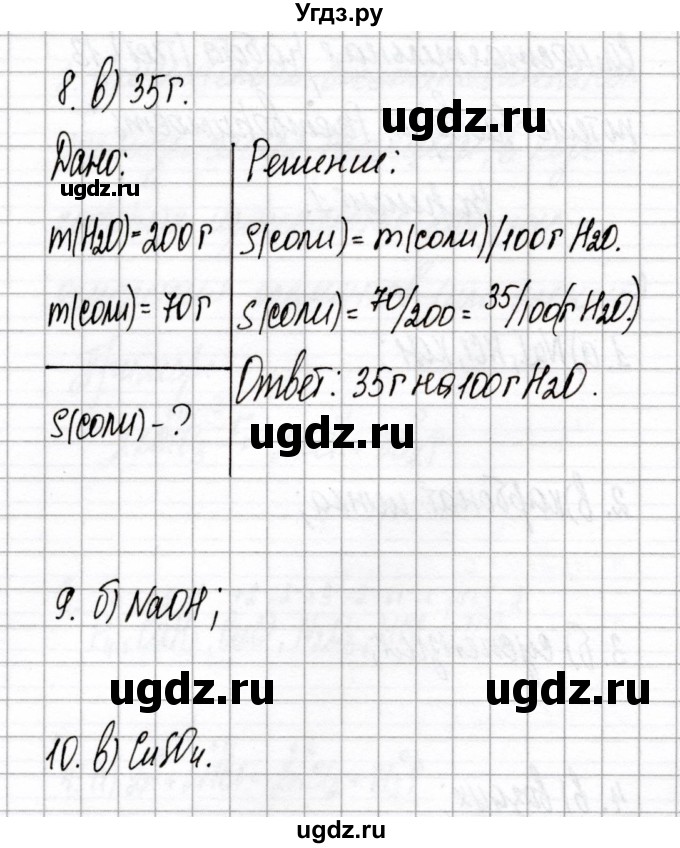 Угдз.ру
8. в) 35г.
ugdz.ru
Дано:
Решение:
ugdz.ru
m(H2O)=200г
S(соли)= m(соли)/100г H2O.
m(соли)= 70г
S(соли)= 70/200 = 35/100(г H2O)
Ответ: 35г на 100г H2O.
S(соли)-?
ugdz.ru
ugdz.ru
9. б) NaOH;
ugdz.ru
ugdz.ru
10. в) CuSO4.
ugdz.ru
ugdz.ru